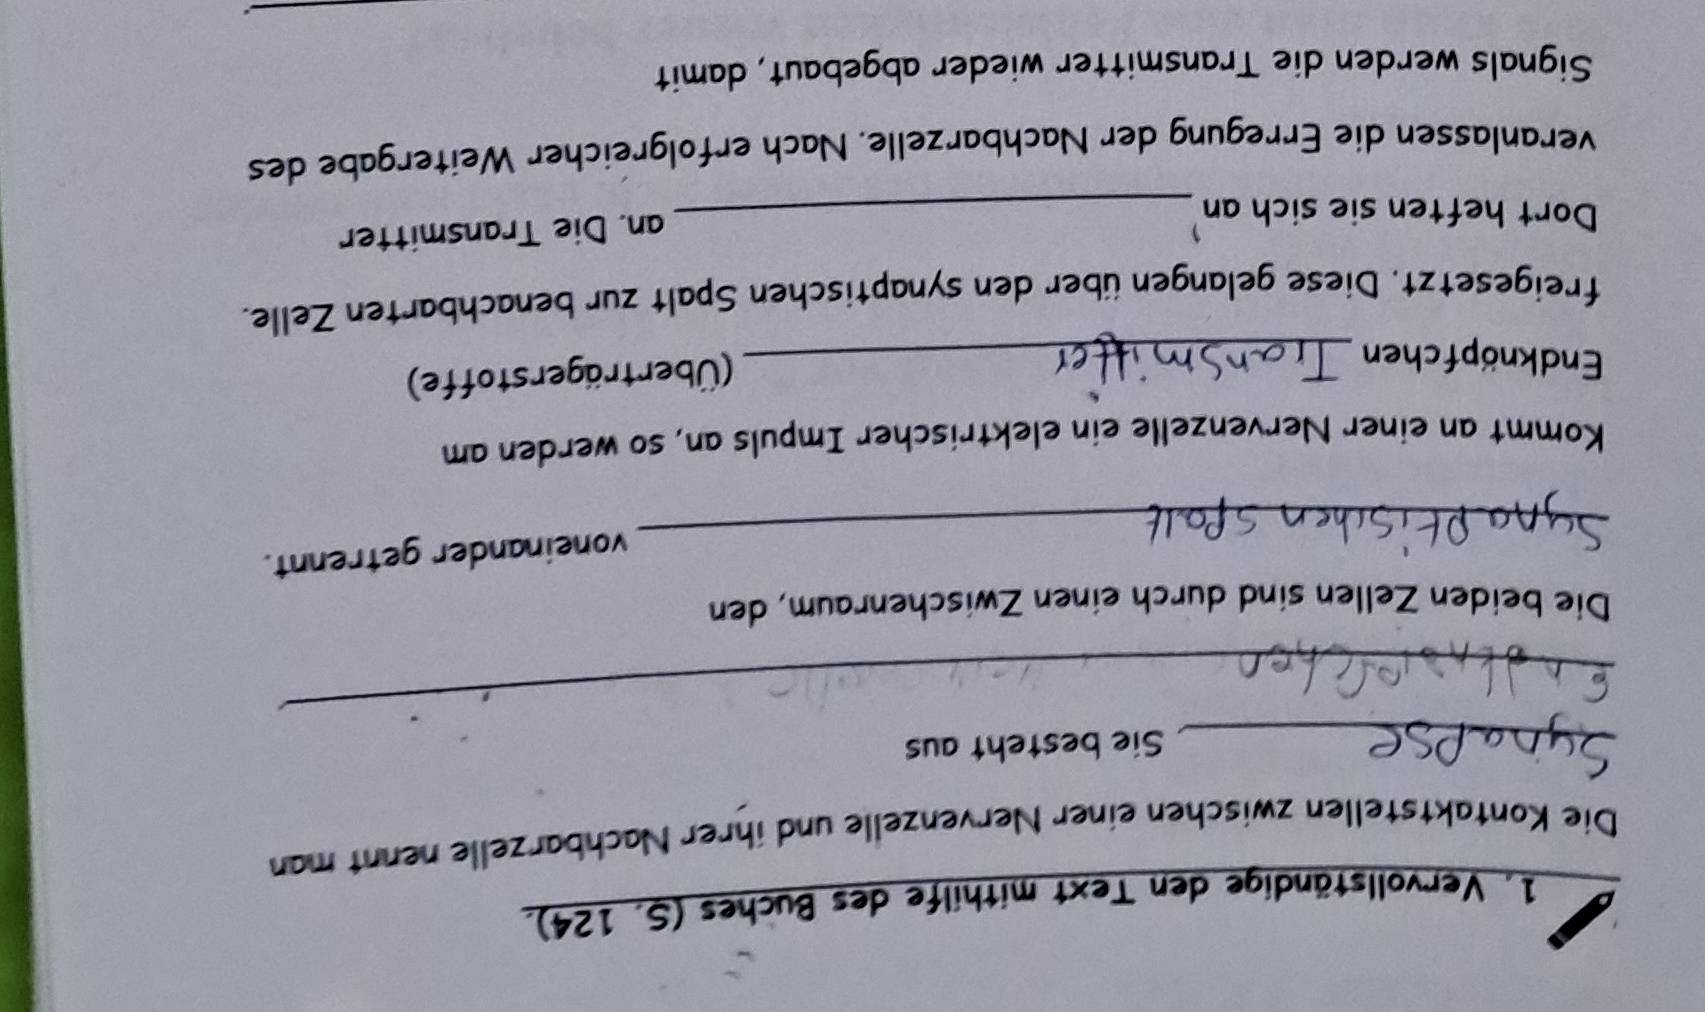 1. Vervollständige den Text mithilfe des Buches (S. 124).
Die Kontaktstellen zwischen einer Nervenzelle und ihrer Nachbarzelle nennt man
Synapse. Sie besteht aus
Endknöpfchen
Die beiden Zellen sind durch einen Zwischenraum, den
Synaptischen Spalt voneinander getrennt.
Kommt an einer Nervenzelle ein elektrischer Impuls an, so werden am
Endknöpfchen Transmitter (Überträgerstoffe)
freigesetzt. Diese gelangen über den synaptischen Spalt zur benachbarten Zelle.
Dort heften sie sich an an. Die Transmitter
veranlassen die Erregung der Nachbarzelle. Nach erfolgreicher Weitergabe des
Signals werden die Transmitter wieder abgebaut, damit